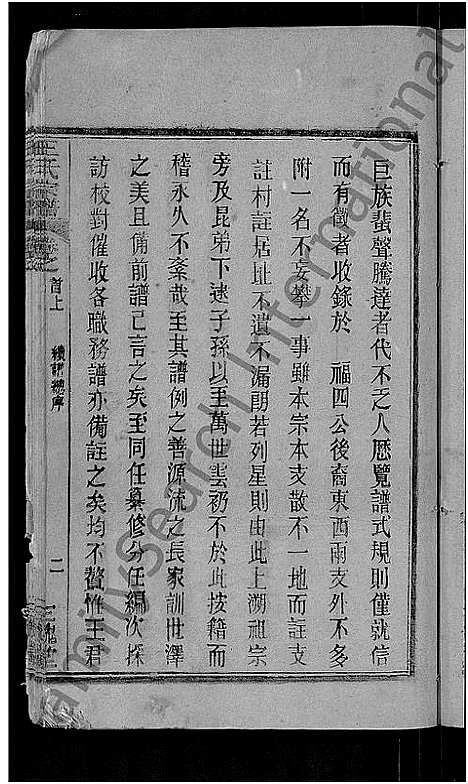 巨族蜚聲騰達者代不乏人厯覽譜式規則僅就信
而有徵者收錄於　福四公後裔東酉兩支外不多
附一名不妄攀一事雖本宗本支散不一地而註支
註村註居址不遺不漏朗若列星則由此上溯祖宗
旁及昆弟下逮子孫以至萬世雲礽不於此按籍而
稽永久不紊哉至其譜例之善源流之長家訓世澤
之美且備前譜已言之矣至同任纂修分任編次採
訪校對催收各職務譜亦備註之矣均不贅惟王君
王氏宗譜
首上　續譜總序　二
三槐堂
FamilySearch International